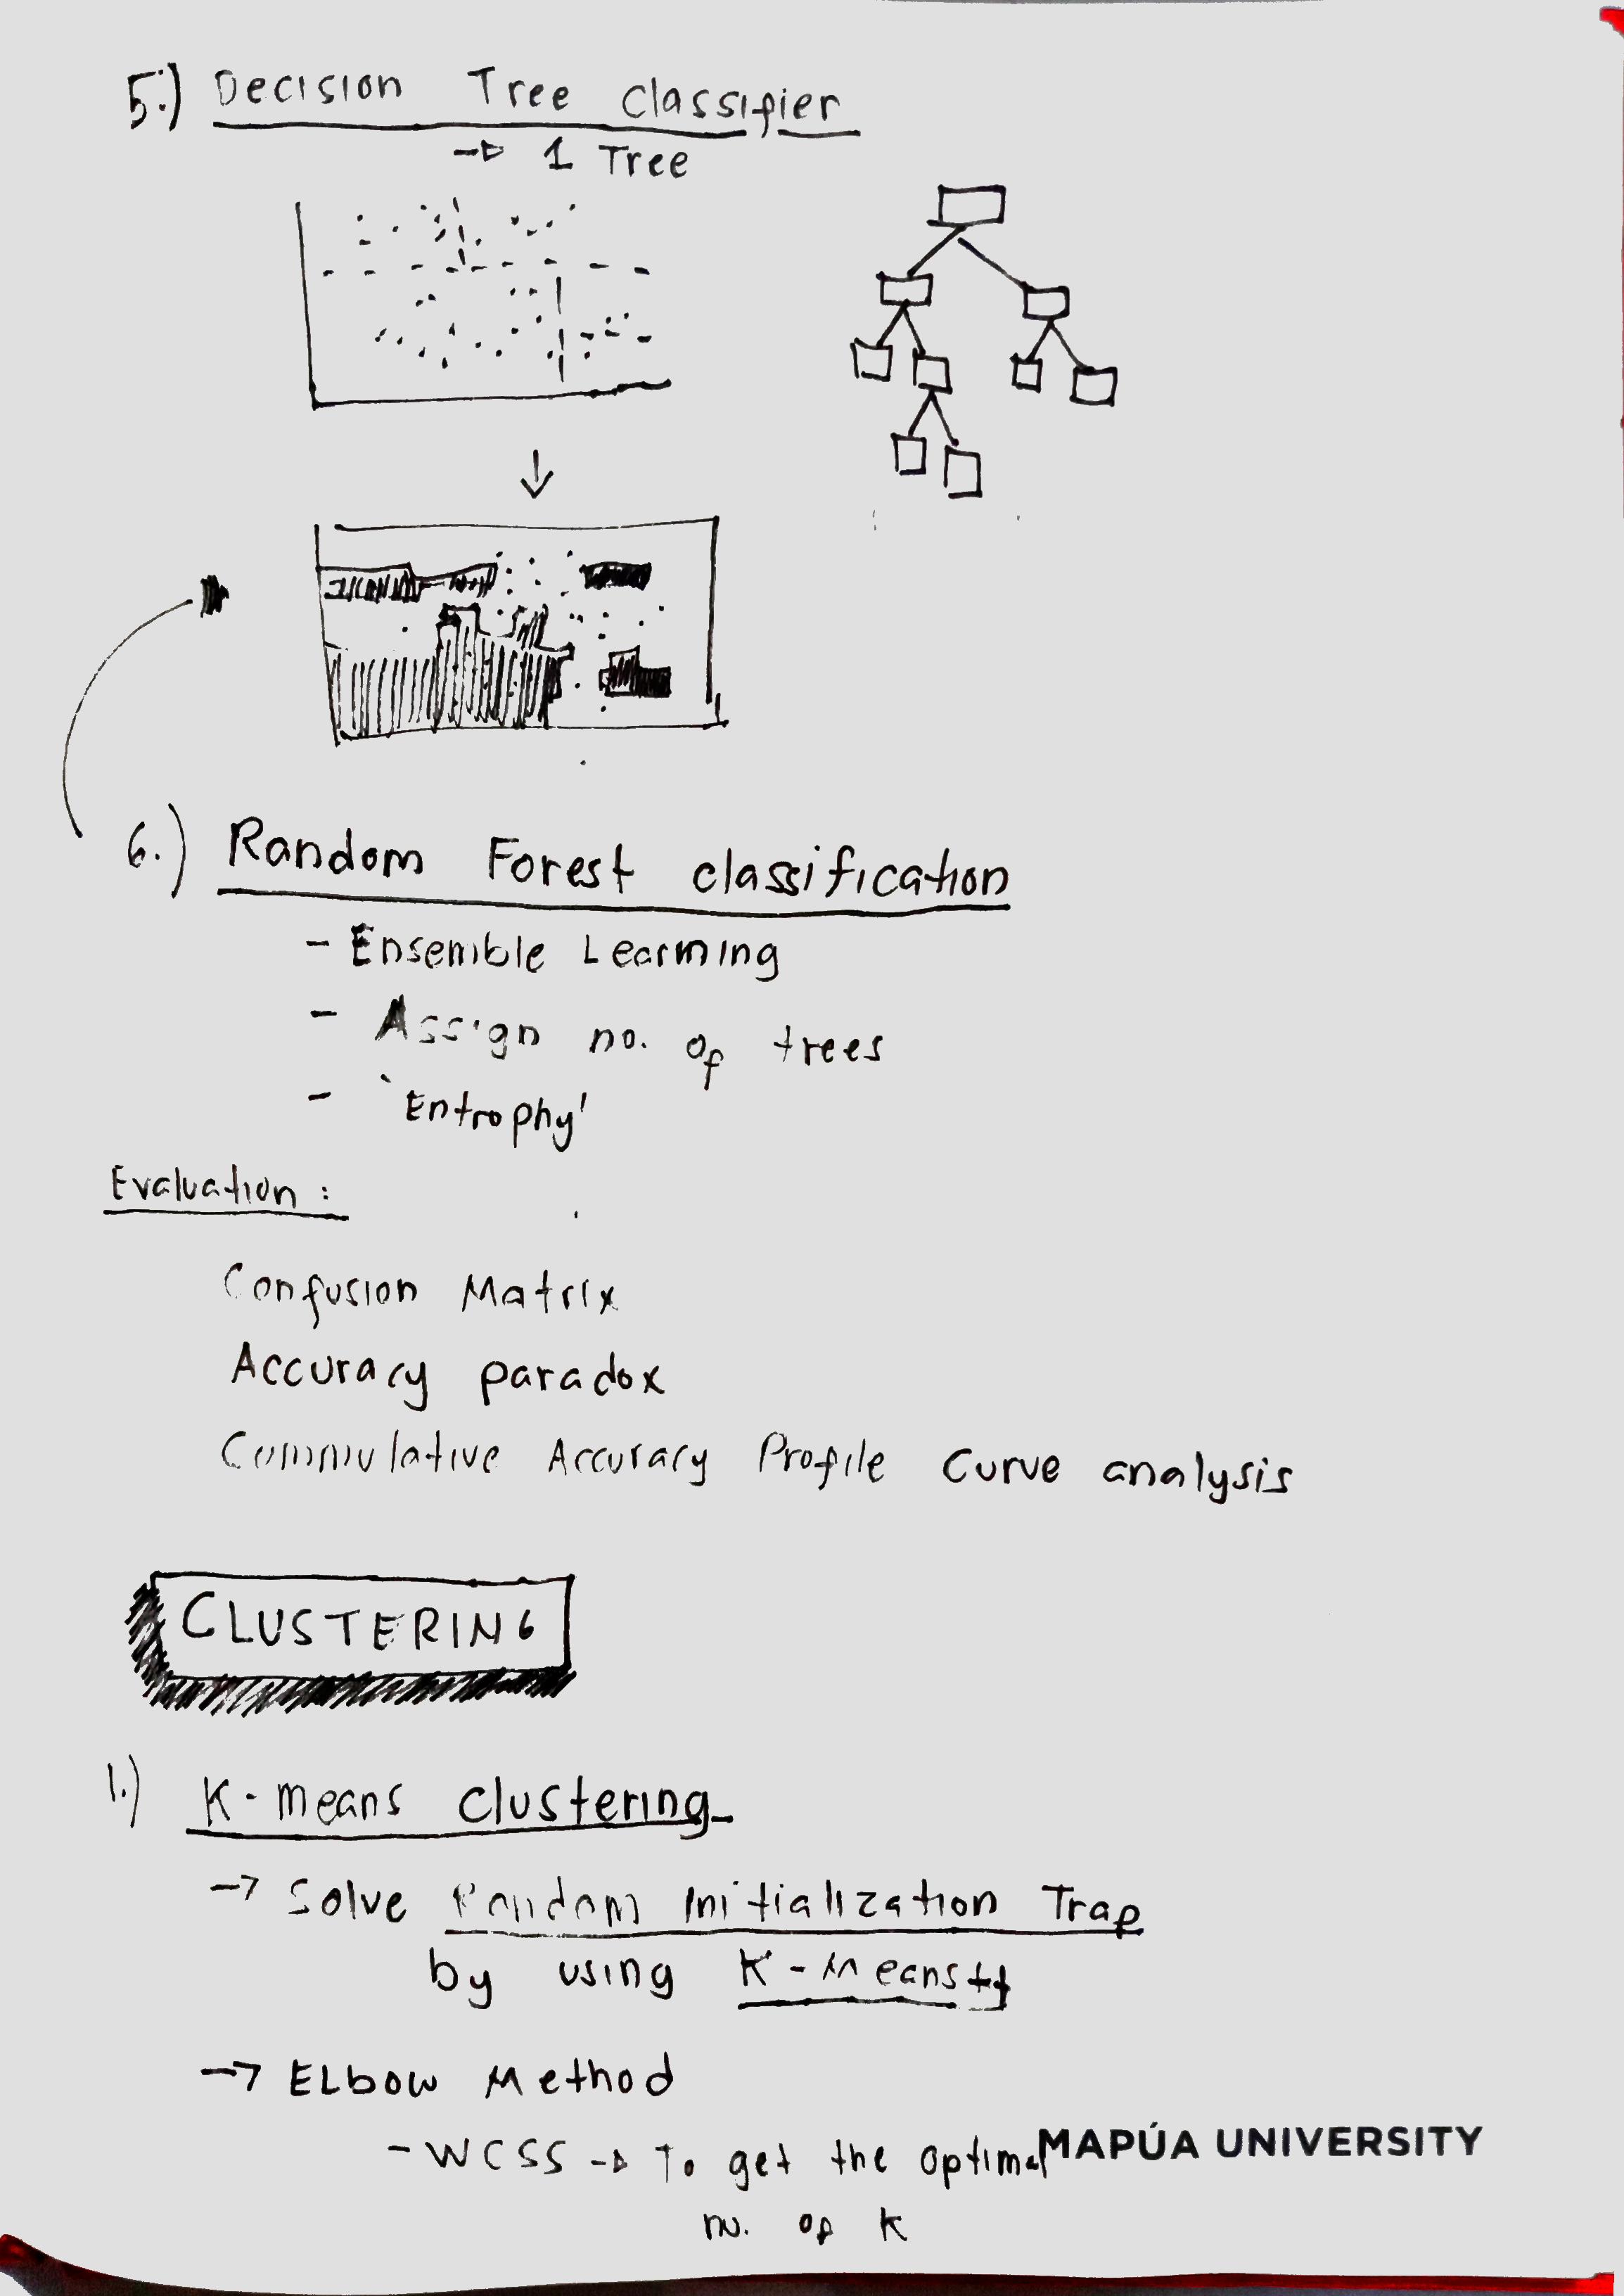 5.) Decision Tree Classifier
→ 1 Tree
↓
6.) Random Forest classification
- Ensemble Learning
- Assign no. of trees
- 'Entrophy'
Evaluation :
Confusion Matrix
Accuracy paradox
Commulative Accuracy Profile Curve analysis
CLUSTERING
1.) K-means clustering
→ Solve Random Initialization Trap
by using K-Means++
→ Elbow Method
- WCSS → To get the optimal
no. of K
MAPÚA UNIVERSITY